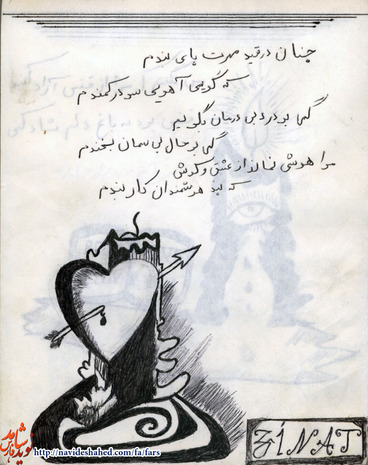 چنان در قید مهرت پای بندم
که گویی آهویی سر در کمندم
گهی بر درد بی درمان بگریم
گهی بر حال بی سامان بخندم
مرا هوشی نماند از عشق و گوشی
که پند هوشمندان کار بندم
ZINAT
نوید شاهد
http://navideshahed.com/fa/fars